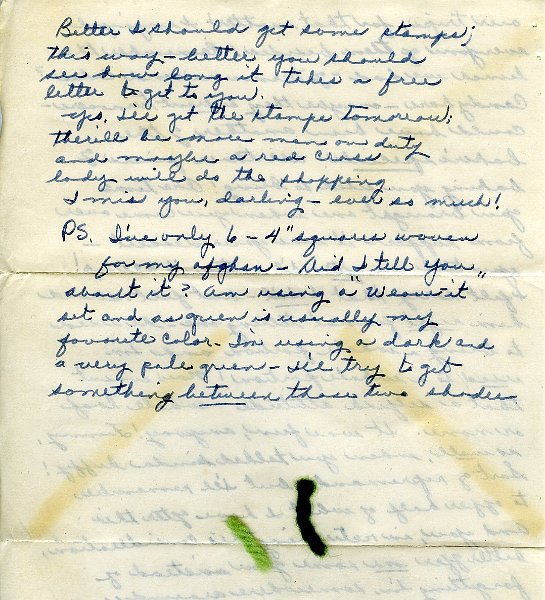 Better I should get some stamps;
this way - better you should
see how long it takes a free
letter to get to you.
Yes. I'll get the stamps tomorrow;
there'll be more men on duty
and maybe a red cross
lady will do the shopping.
I miss you, darling - ever so much!
PS. I've only 6 - 4" squares woven
for my afghan - Did I tell you
about it? Am using a "Weave-it"
set and as green is usually my
favorite color - I'm using a dark and
a very pale green - I'll try to get
something between those two shades